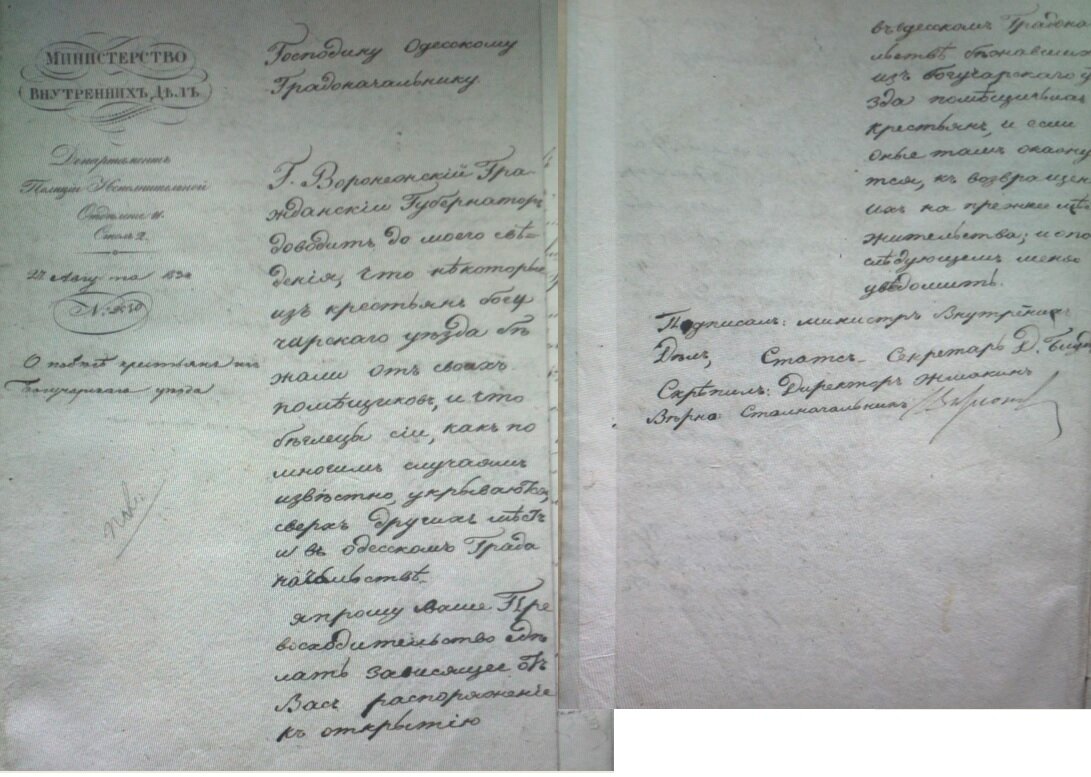 МИНИСТЕРСТВО
ВНУТРЕННИХЪ ДѢЛЪ.
Департаментъ
Полиціи Исполнительной
Отделеніе II.
Столъ 2.
27 Августа 183
№
О побѣгѣ крестьянъ изъ
Богучарскаго уѣзда
Господину Одесскому
Градоначальнику.
Г. Воронежскій Гра-
жданскій Губернаторъ
доводитъ до моего свѣ-
денія, что нѣкоторые
изъ крестьянъ богу
чарскаго уѣзда бѣ
жали отъ своихъ
помѣщиковъ, и что
бѣглецы сіи, какъ по
многимъ случаямъ
извѣстно, укрываются,
сверхъ другихъ мѣстъ
и въ одесскомъ Градо
начальствѣ.
я прошу Ваше Пре
восходительство сдѣ
лать зависящее отъ
Васъ распоряженіе
къ открытію
въ одесскомъ Градона
льствѣ бѣжавшихъ
изъ богучарскаго у
зда помѣщичьихъ
крестьянъ, и если
оные тамъ окажу
тся, къ возвращен
ихъ на прежнее мѣ
жительства; и о по
слѣдующемъ меня
увѣдомить.
Подписалъ: министръ Внутрених
Дѣлъ, Статсъ-Секретарь Д. Блуд
Скрѣпилъ: Директоръ Жмакинъ
Вѣрно: Столначальникъ